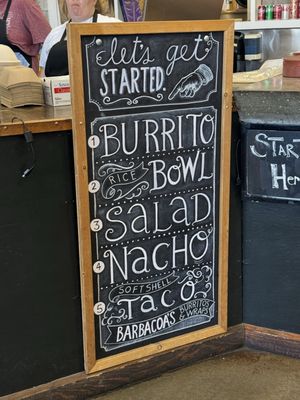 let's get
STARTED.
1 BURRITO
2 RICE BOWL
3 SALAD
4 NACHO
SOFT SHELL
5 TACO
BARBACOA'S BURRITOS & WRAPS
START
HER